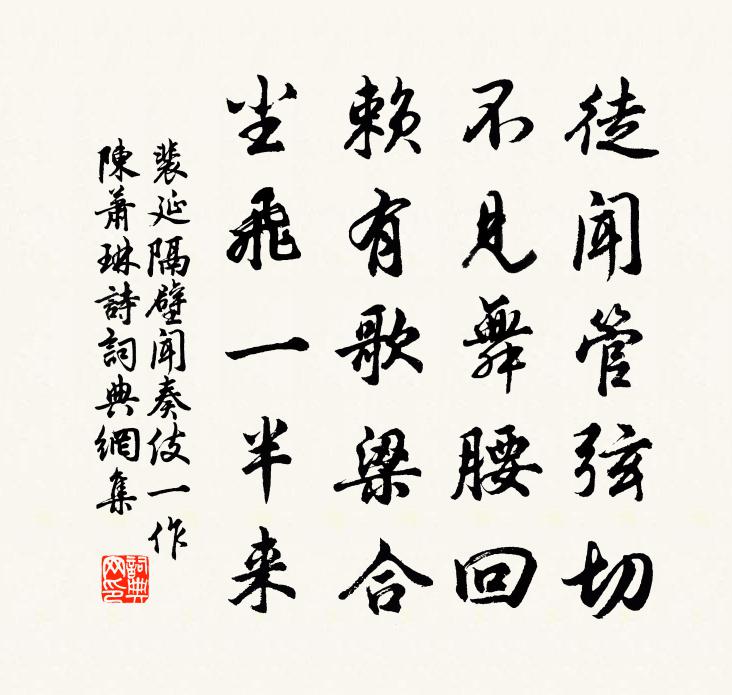 徒闻管弦切
不見舞腰回
赖有歌梁合
尘飛一半来
裴延隔壁闻奏伎一作
陳蕭琳詩詞典網集
詞典
网印